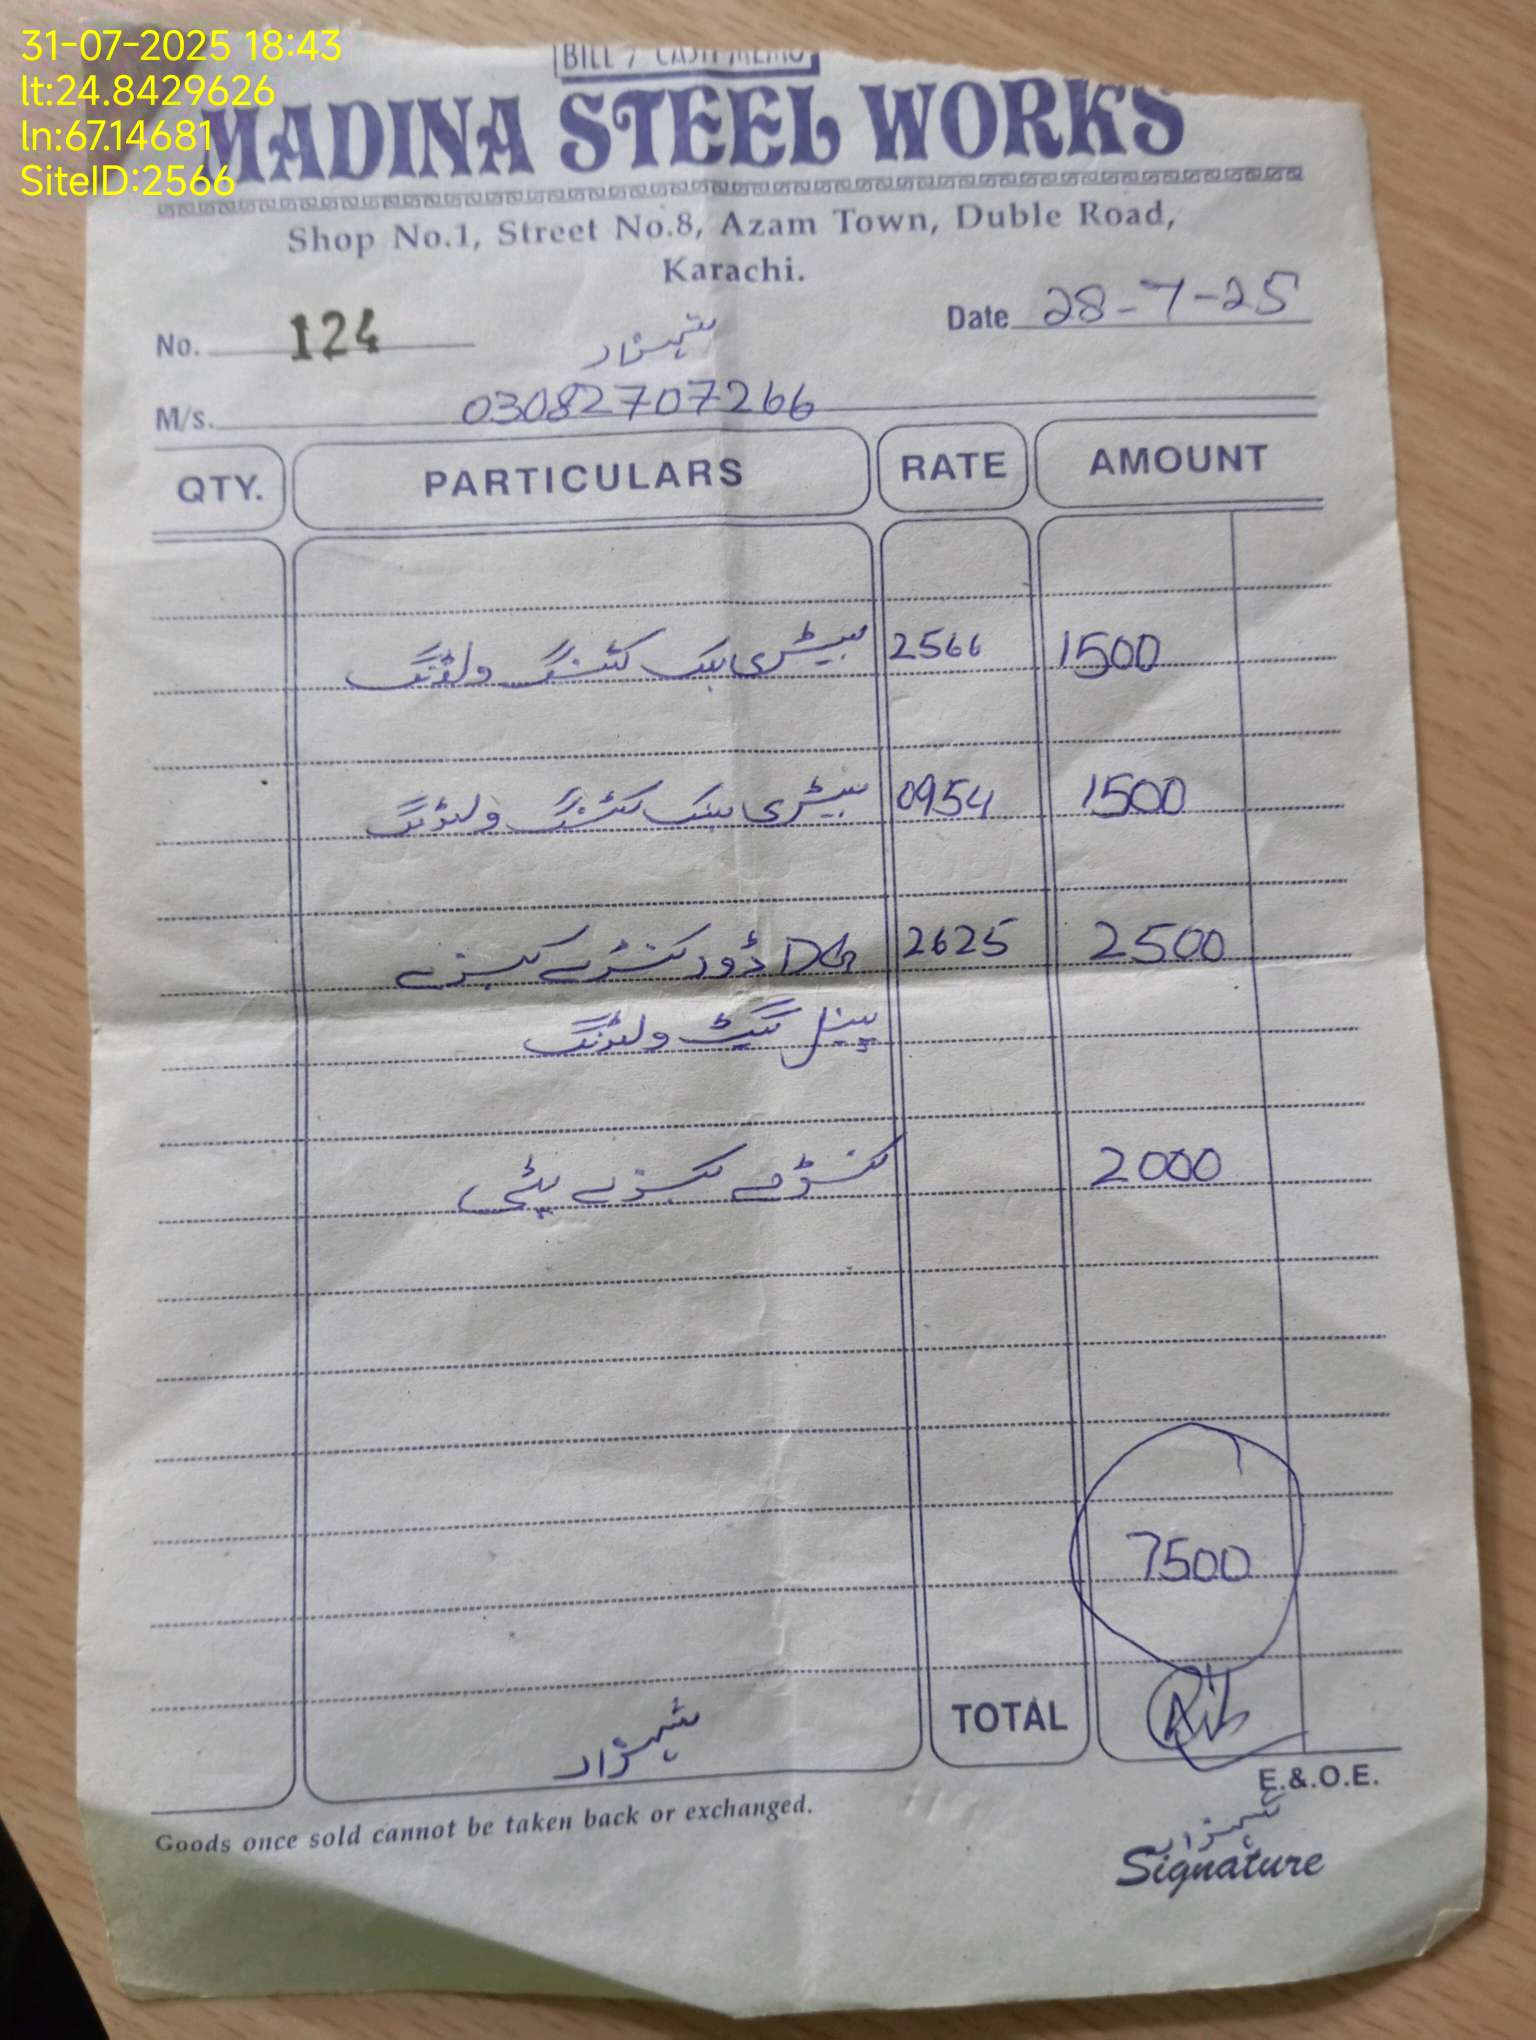 31-07-2025 18:43
lt:24.8429626
ln:67.14681
SiteID:2566
BILL / CASH MEMO
MADINA STEEL WORKS
Shop No.1, Street No.8, Azam Town, Duble Road,
Karachi.
No. 124 Date 28-7-25
شہزاد
M/s. 03082707266
QTY. PARTICULARS RATE AMOUNT
بیٹری بنک کٹنگ ولڈنگ 2566 1500
بیٹری بنک کٹنگ ولڈنگ 0954 1500
DG ڈور کنڈے 2625 2500
پینل گیٹ ولڈنگ
کنڈے پٹی 2000
7500
شہزاد
TOTAL
E.&.O.E.
Goods once sold cannot be taken back or exchanged.
شہزاد
Signature